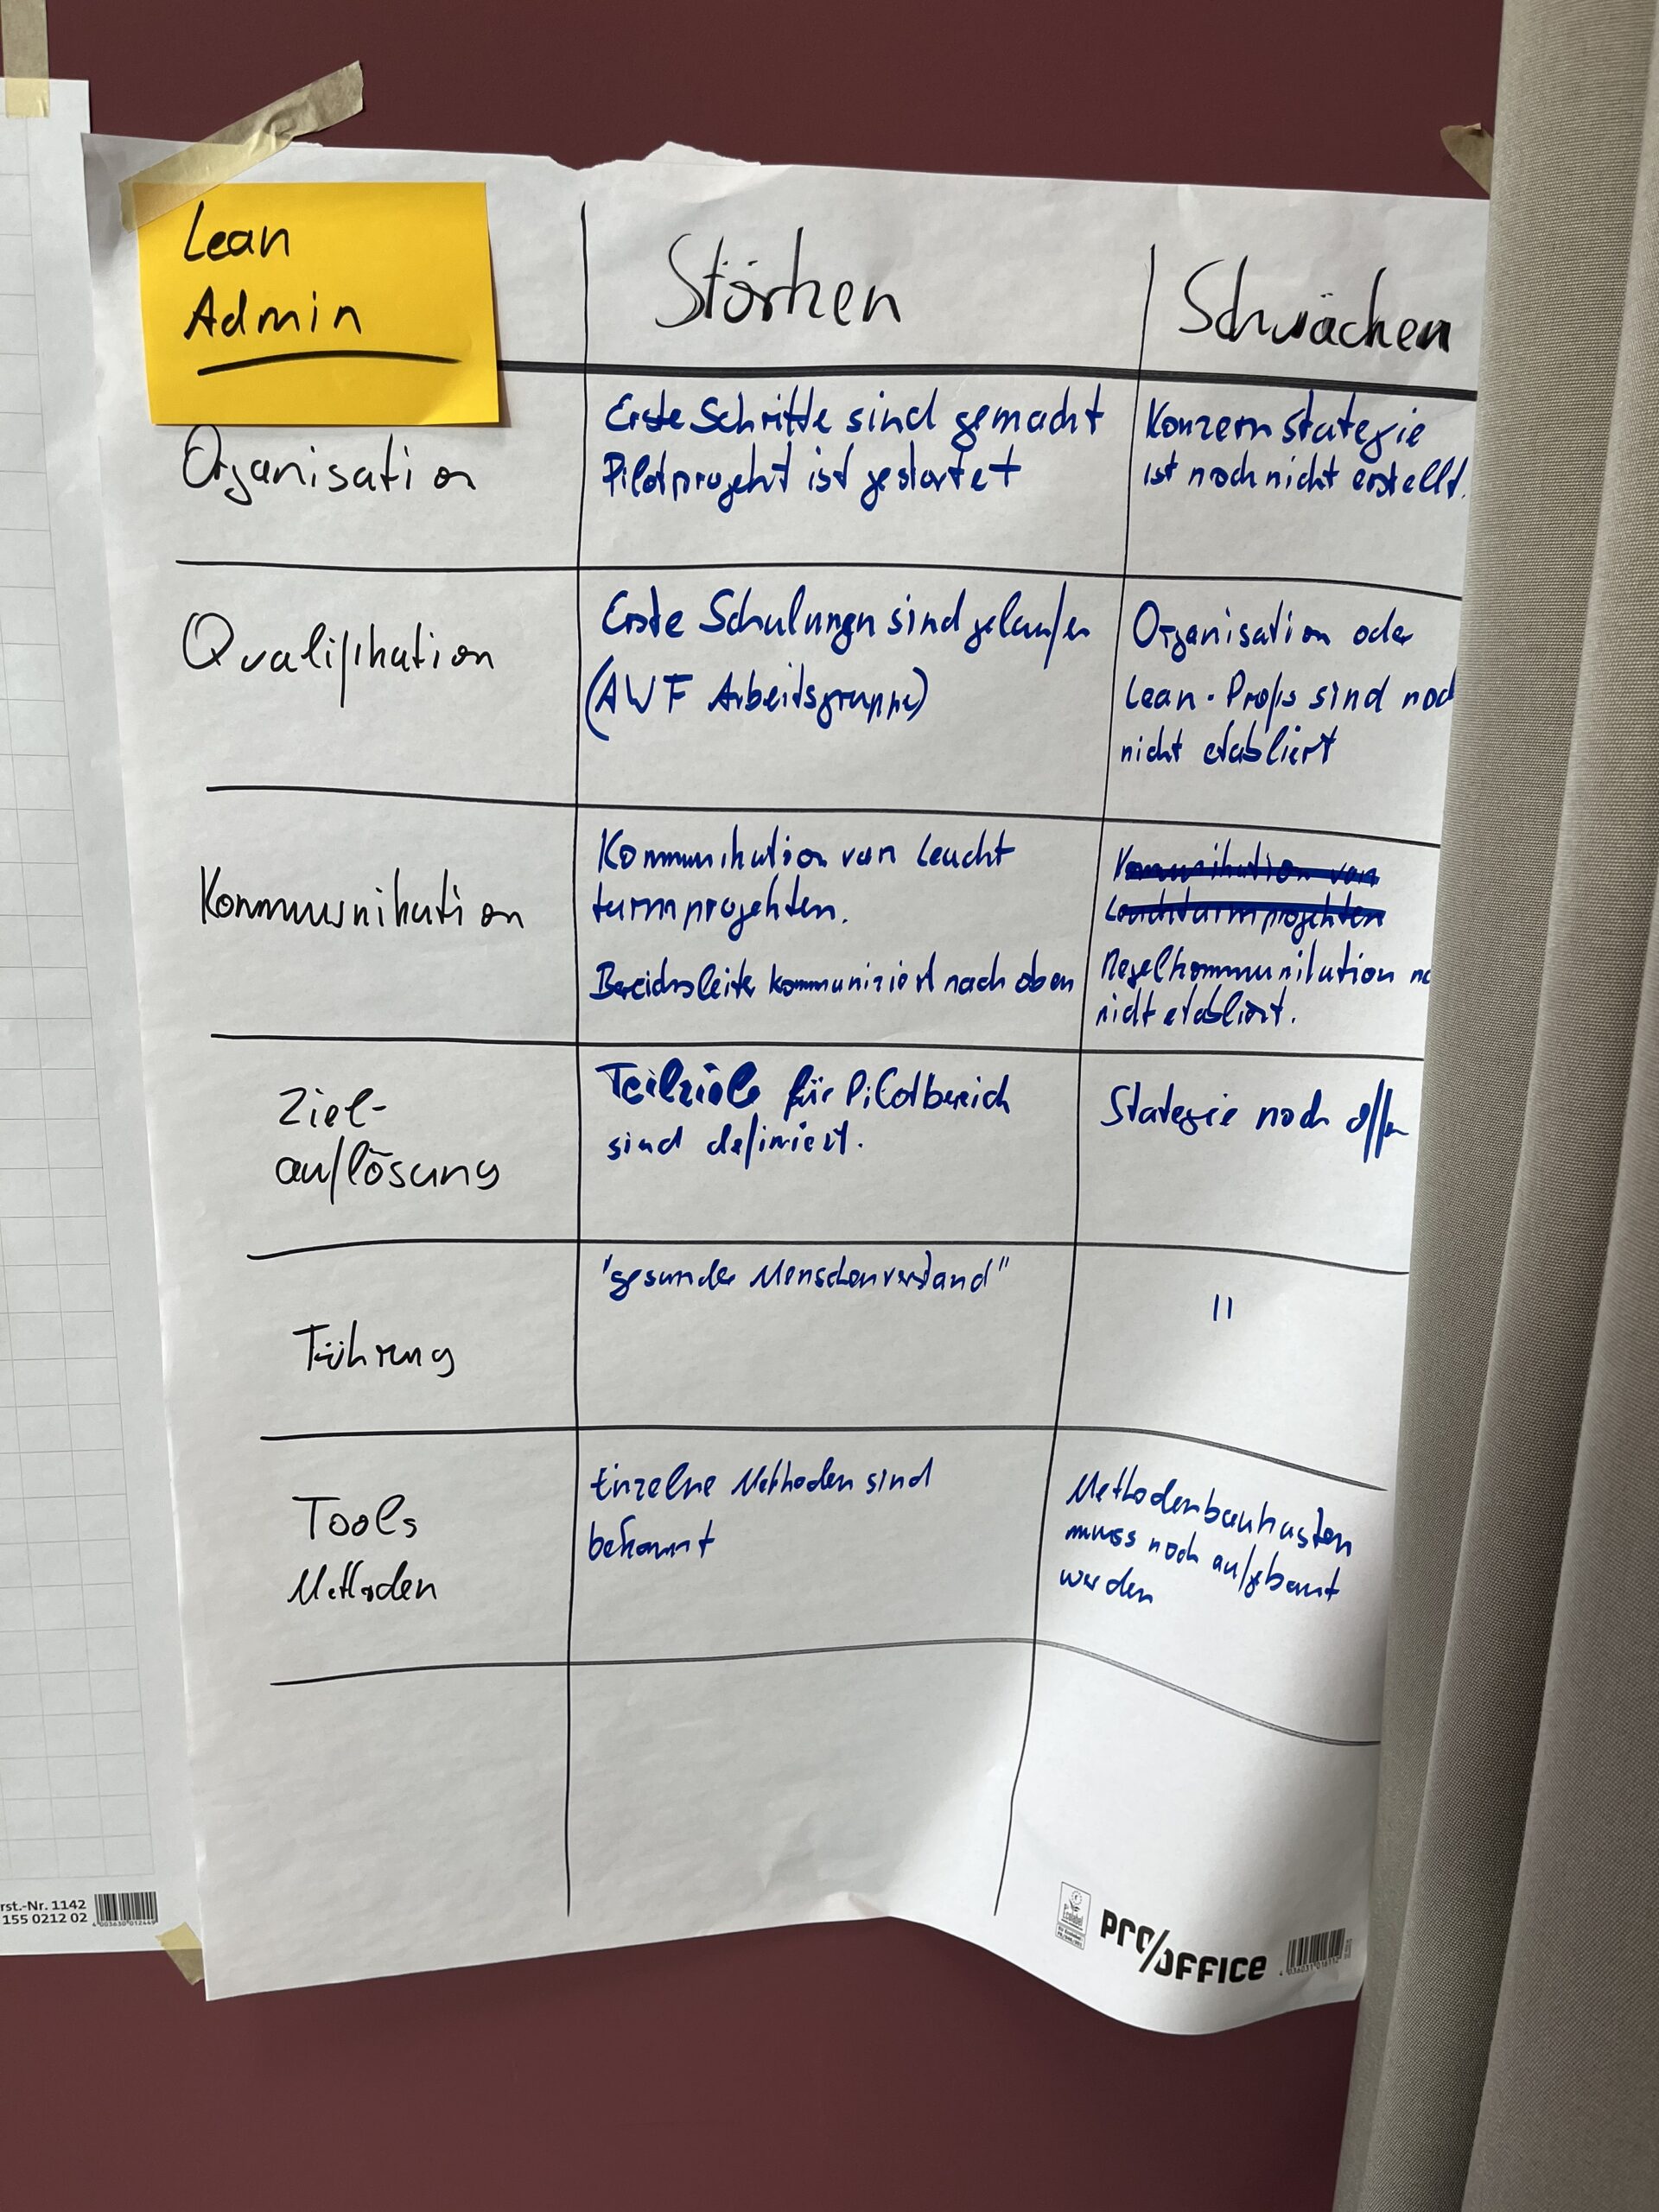 Lean
Admin
Stärken
Schwächen
Organisation
Erste Schritte sind gemacht
Pilotprojekt ist gestartet
Konzernstategie
ist noch nicht erstellt.
Qualifikation
Erste Schulungen sind gelaufen
(AWF Arbeitsgruppe)
Organisation oder
Lean-Profis sind noch
nicht etabliert
Kommunikation
Kommunikation von Leucht
turmprojekten.
Bereichsleiter kommuniziert nach oben
Kommunikation von
Leuchtturmprojekten
Regelkommunikation no
nicht etabliert.
Ziel-
auflösung
Teilziele für Pilotbereich
sind definiert.
Stategie noch offen
Führung
"gesunder Menschenverstand"
"
Tools
Methoden
Einzelne Methoden sind
bekannt
Methodenbaukasten
muss noch aufgebaut
werden
rst.-Nr. 1142
155 0212 02
Ecolabel
PRO/OFFICE